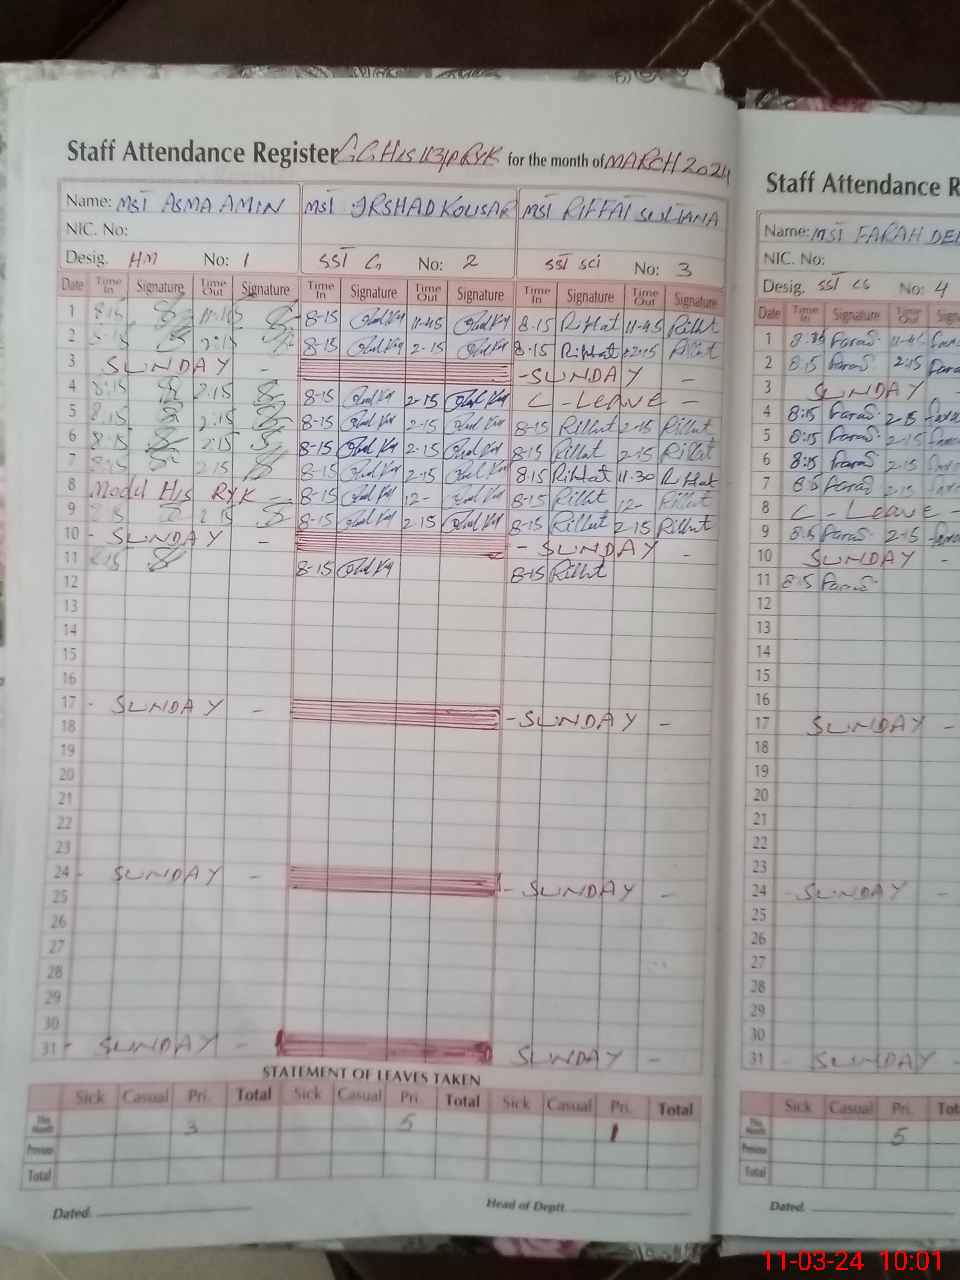 Staff Attendance Register G.G.H/S 113/P RYK for the month of MARCH 2024
Name: MST ASMA AMIN MST IRSHAD KOUSAR MST RIFFAT SULTANA
NIC. No:
Desig. HM No: 1 SST G No: 2 SST SCI No: 3
Date Time In Signature Time Out Signature Time In Signature Time Out Signature Time In Signature Time Out Signature
1 8.15 11.15 8-15 11-45 8.15 Riffat 11-45 Riffat
2 8-15 2-15 8-15 Riffat 2-15 Riffat
3 SUNDAY - - SUNDAY -
4 8:15 2.15 8-15 2-15 C - LEAVE -
5 8.15 2.15 8-15 2-15 8-15 Riffat 2-15 Riffat
6 8:15 2:15 8-15 2-15 8-15 Riffat 2-15 Riffat
7 8:15 2.15 8-15 2-15 8.15 Riffat 11.30 Riffat
8 Model H/S RYK - 8-15 12- 8-15 Riffat 12- Riffat
9 2.15 8-15 2-15 8-15 Riffat 2-15 Riffat
10 - SUNDAY - - SUNDAY -
11 8.15 8-15 8-15 Riffat
12
13
14
15
16
17 - SUNDAY - - SUNDAY -
18
19
20
21
22
23
24 - SUNDAY - - SUNDAY -
25
26
27
28
29
30
31 - SUNDAY - SUNDAY -
STATEMENT OF LEAVES TAKEN
Sick Casual Pri. Total Sick Casual Pri. Total Sick Casual Pri. Total
This Month 3 5 1
Previous
Total
Dated. Head of Deptt.
Staff Attendance R
Name: MST FARAH DE
NIC. No:
Desig. SST CS No: 4
Date Time In Signature Time Out
1 8.15 Faras 11-45
2 8.15 Faras 2.15
3 SUNDAY -
4 8:15 Faras 2-15
5 8:15 Faras 2-15
6 8:15 Faras 2-15
7 8.5 Faras 2.15
8 C - Leave -
9 8.5 Faras 2-15
10 SUNDAY -
11 8:15 Faras
12
13
14
15
16
17 SUNDAY -
18
19
20
21
22
23
24 - SUNDAY -
25
26
27
28
29
30
31 - SUNDAY -
Sick Casual Pri. Tot
This Month 5
Previous
Total
Dated.
11-03-24 10:01